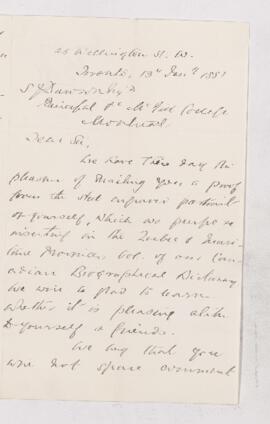 25 Wellington St. W.
Toronto, 13th Jany 1881
Principal &c McGill College
Montreal.
Dear Sir,
We have this day the
pleasure of mailing you a proof
from the steel engraved portrait
of yourself, which we purpose
inserting in the Quebec & Mari-
time Provinces Vol. of our Can-
adian Biographical Dictionary
We wire to glad to learn
whether it is pleasing alike
to yourself & friends.
We beg that you
will not spare comment